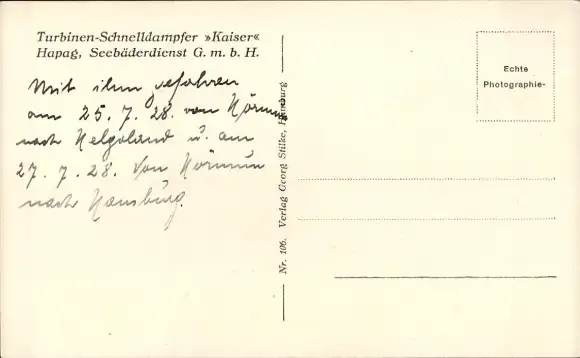 Turbinen-Schnelldampfer »Kaiser«
Hapag, Seebäderdienst G. m. b. H.
Mit ihm gefahren
am 25. 7. 28. von Hörnum
nach Helgoland u. am
27. 7. 28. von Hörnum
nach Hamburg.
Nr. 106. Verlag Georg Stilke, Hamburg
Echte
Photographie-